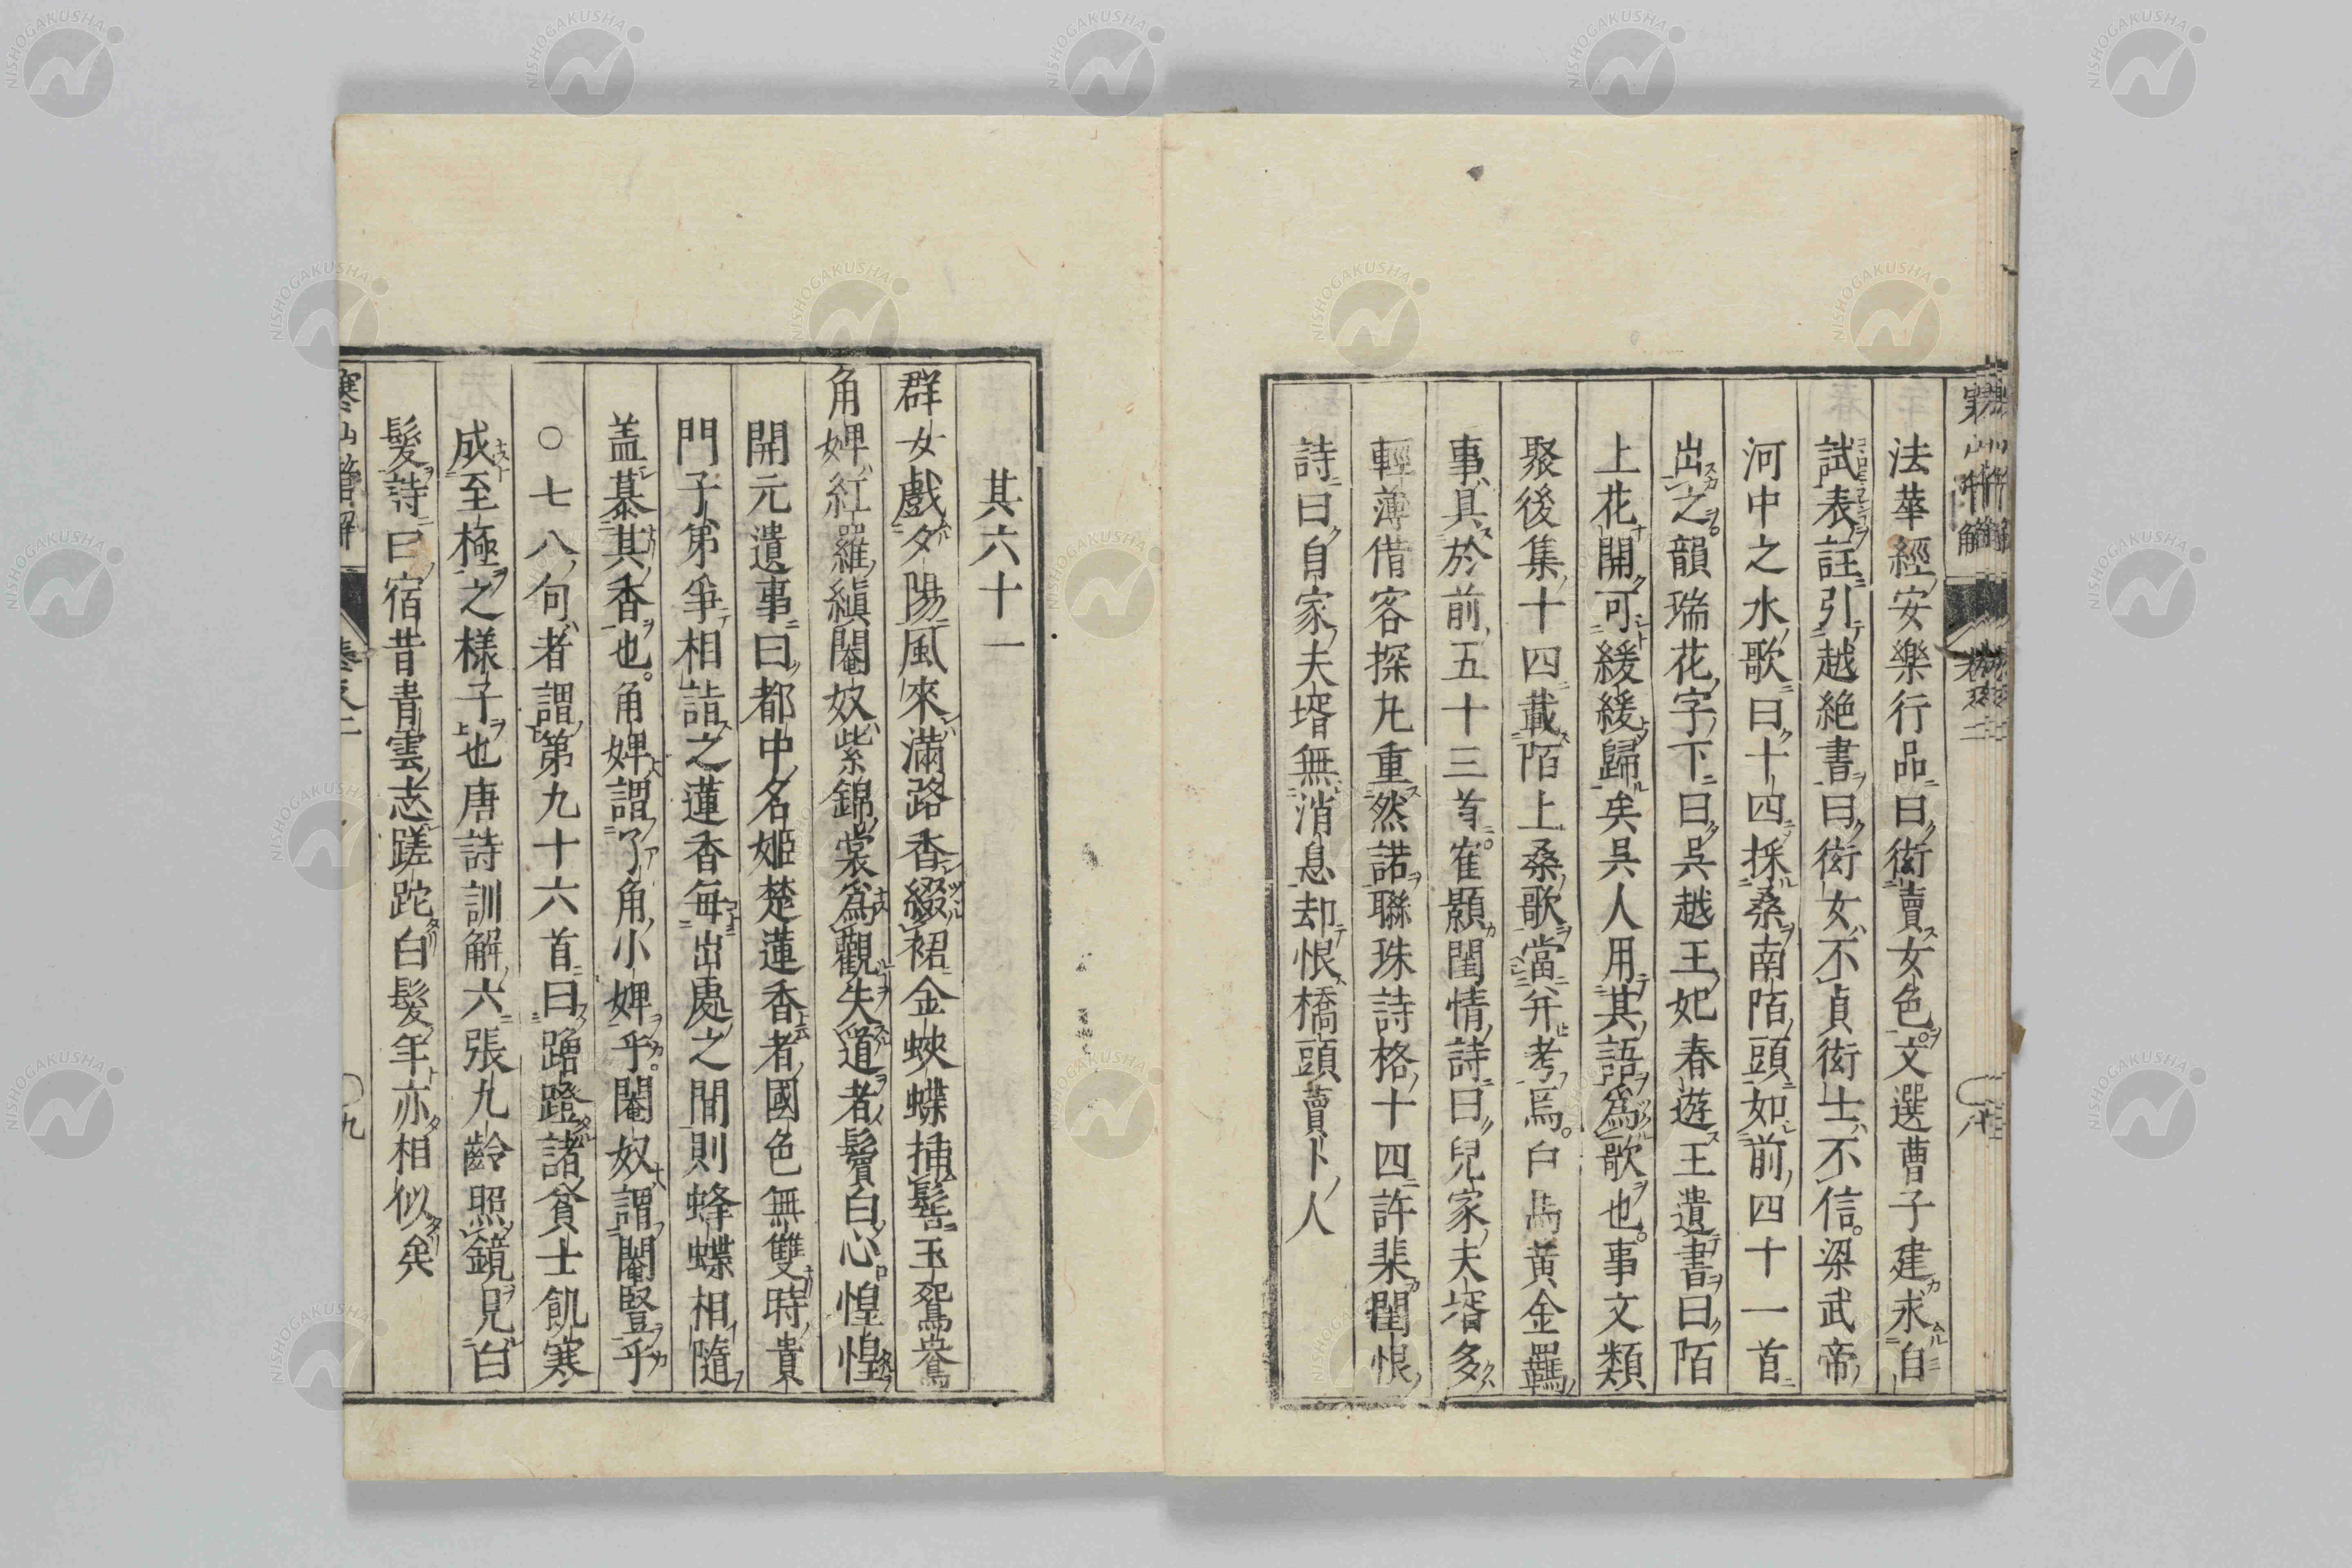 法華經安樂行品曰衒賣女色文選曹子建求自
試表註引越絶書曰衒女不貞衒士不信梁武帝
河中之水歌曰十四採桑南陌頭如前四十一首
出之韻瑞花字下曰呉越王妃春遊王遺書曰陌
上花開可緩緩歸矣呉人用其語為歌也事文類
聚後集十四載陌上桑歌當并考焉白馬黄金羈
事具於前五十三首崔顥閨情詩曰兒家夫壻多
輕薄借客探丸重然諾聯珠詩格十四許棐閨恨
詩曰自家夫壻無消息却恨橋頭賣卜人
其六十一
群女戲夕陽風來滿路香綴裙金蛺蝶插髻玉鴛鴦
角婢紅羅縝閹奴紫錦裳為觀失道者鬢白心惶惶
開元遺事曰都中名姬楚蓮香者國色無雙時貴
門子弟爭相詣之蓮香毎出處之間則蜂蝶相隨
盖慕其香也角婢謂了角小婢乎閹奴謂閹豎乎
○七八句者謂第九十六首曰蹭蹬諸貧士飢寒
成至極之様子也唐詩訓解六張九齡照鏡見白
髮詩曰宿昔青雲志蹉跎白髮年亦相似矣